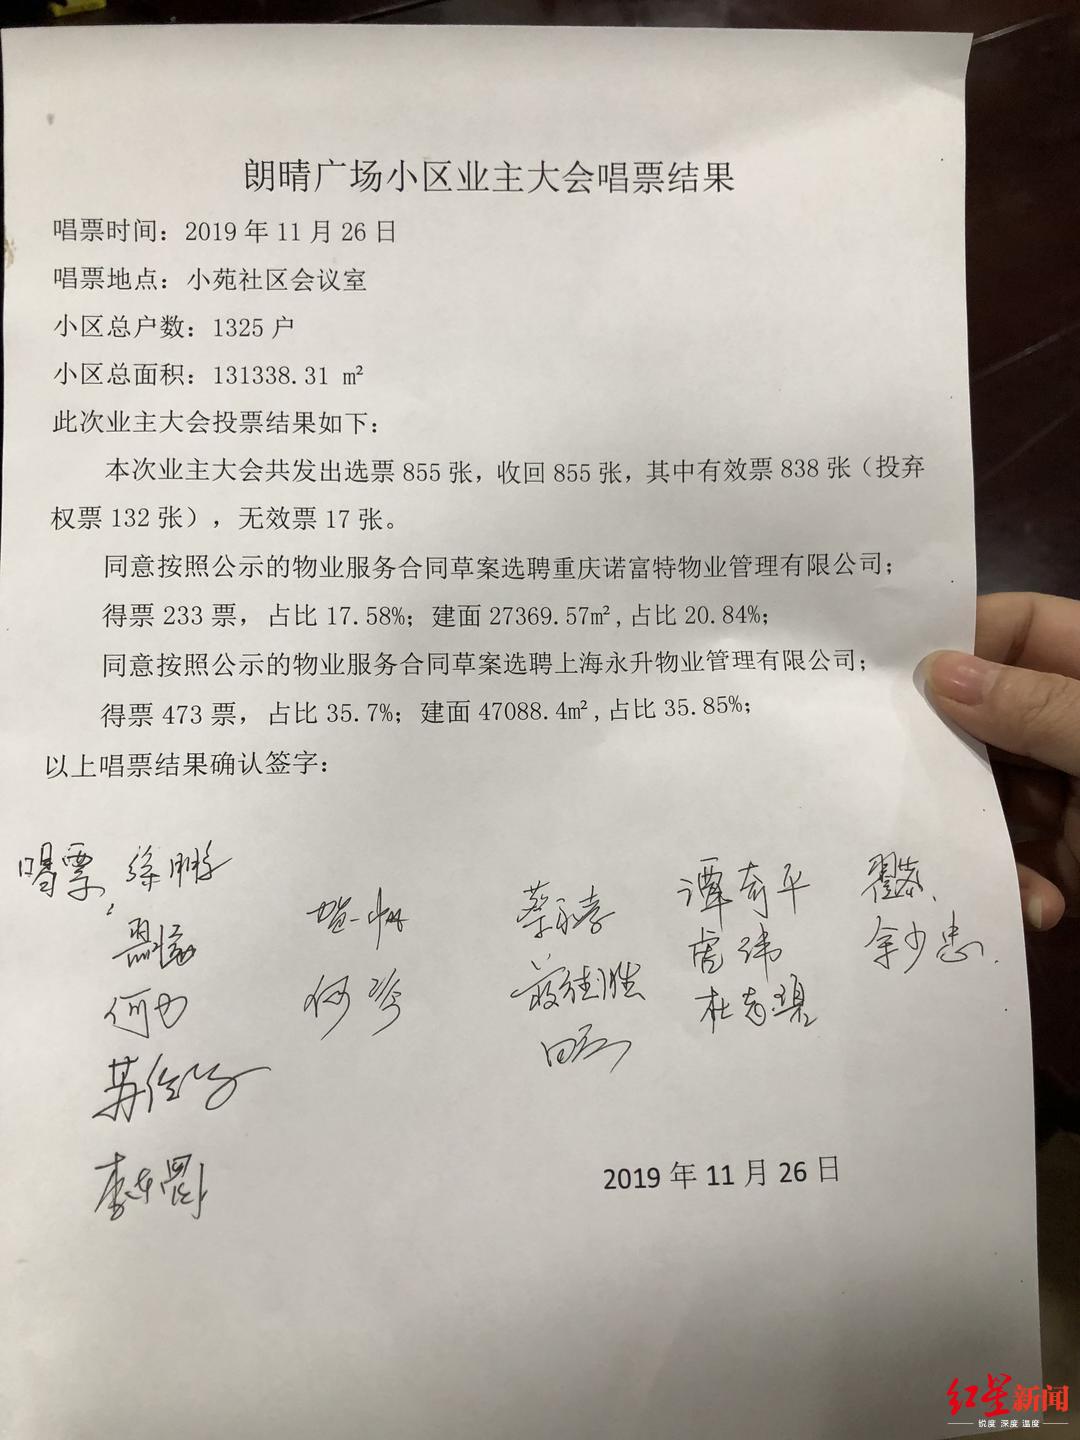 朗晴广场小区业主大会唱票结果
唱票时间：2019年11月26日
唱票地点：小苑社区会议室
小区总户数：1325户
小区总面积：131338.31 ㎡
此次业主大会投票结果如下：
本次业主大会共发出选票855张，收回855张，其中有效票838张（投弃
权票132张），无效票17张。
同意按照公示的物业服务合同草案选聘重庆诺富特物业管理有限公司；
得票233票，占比17.58%；建面27369.57㎡,占比20.84%；
同意按照公示的物业服务合同草案选聘上海永升物业管理有限公司；
得票473票，占比35.7%；建面47088.4㎡,占比35.85%；
以上唱票结果确认签字：
唱票
谭奇平
余少忠
何力
2019年11月26日
红星新闻
锐度 深度 温度